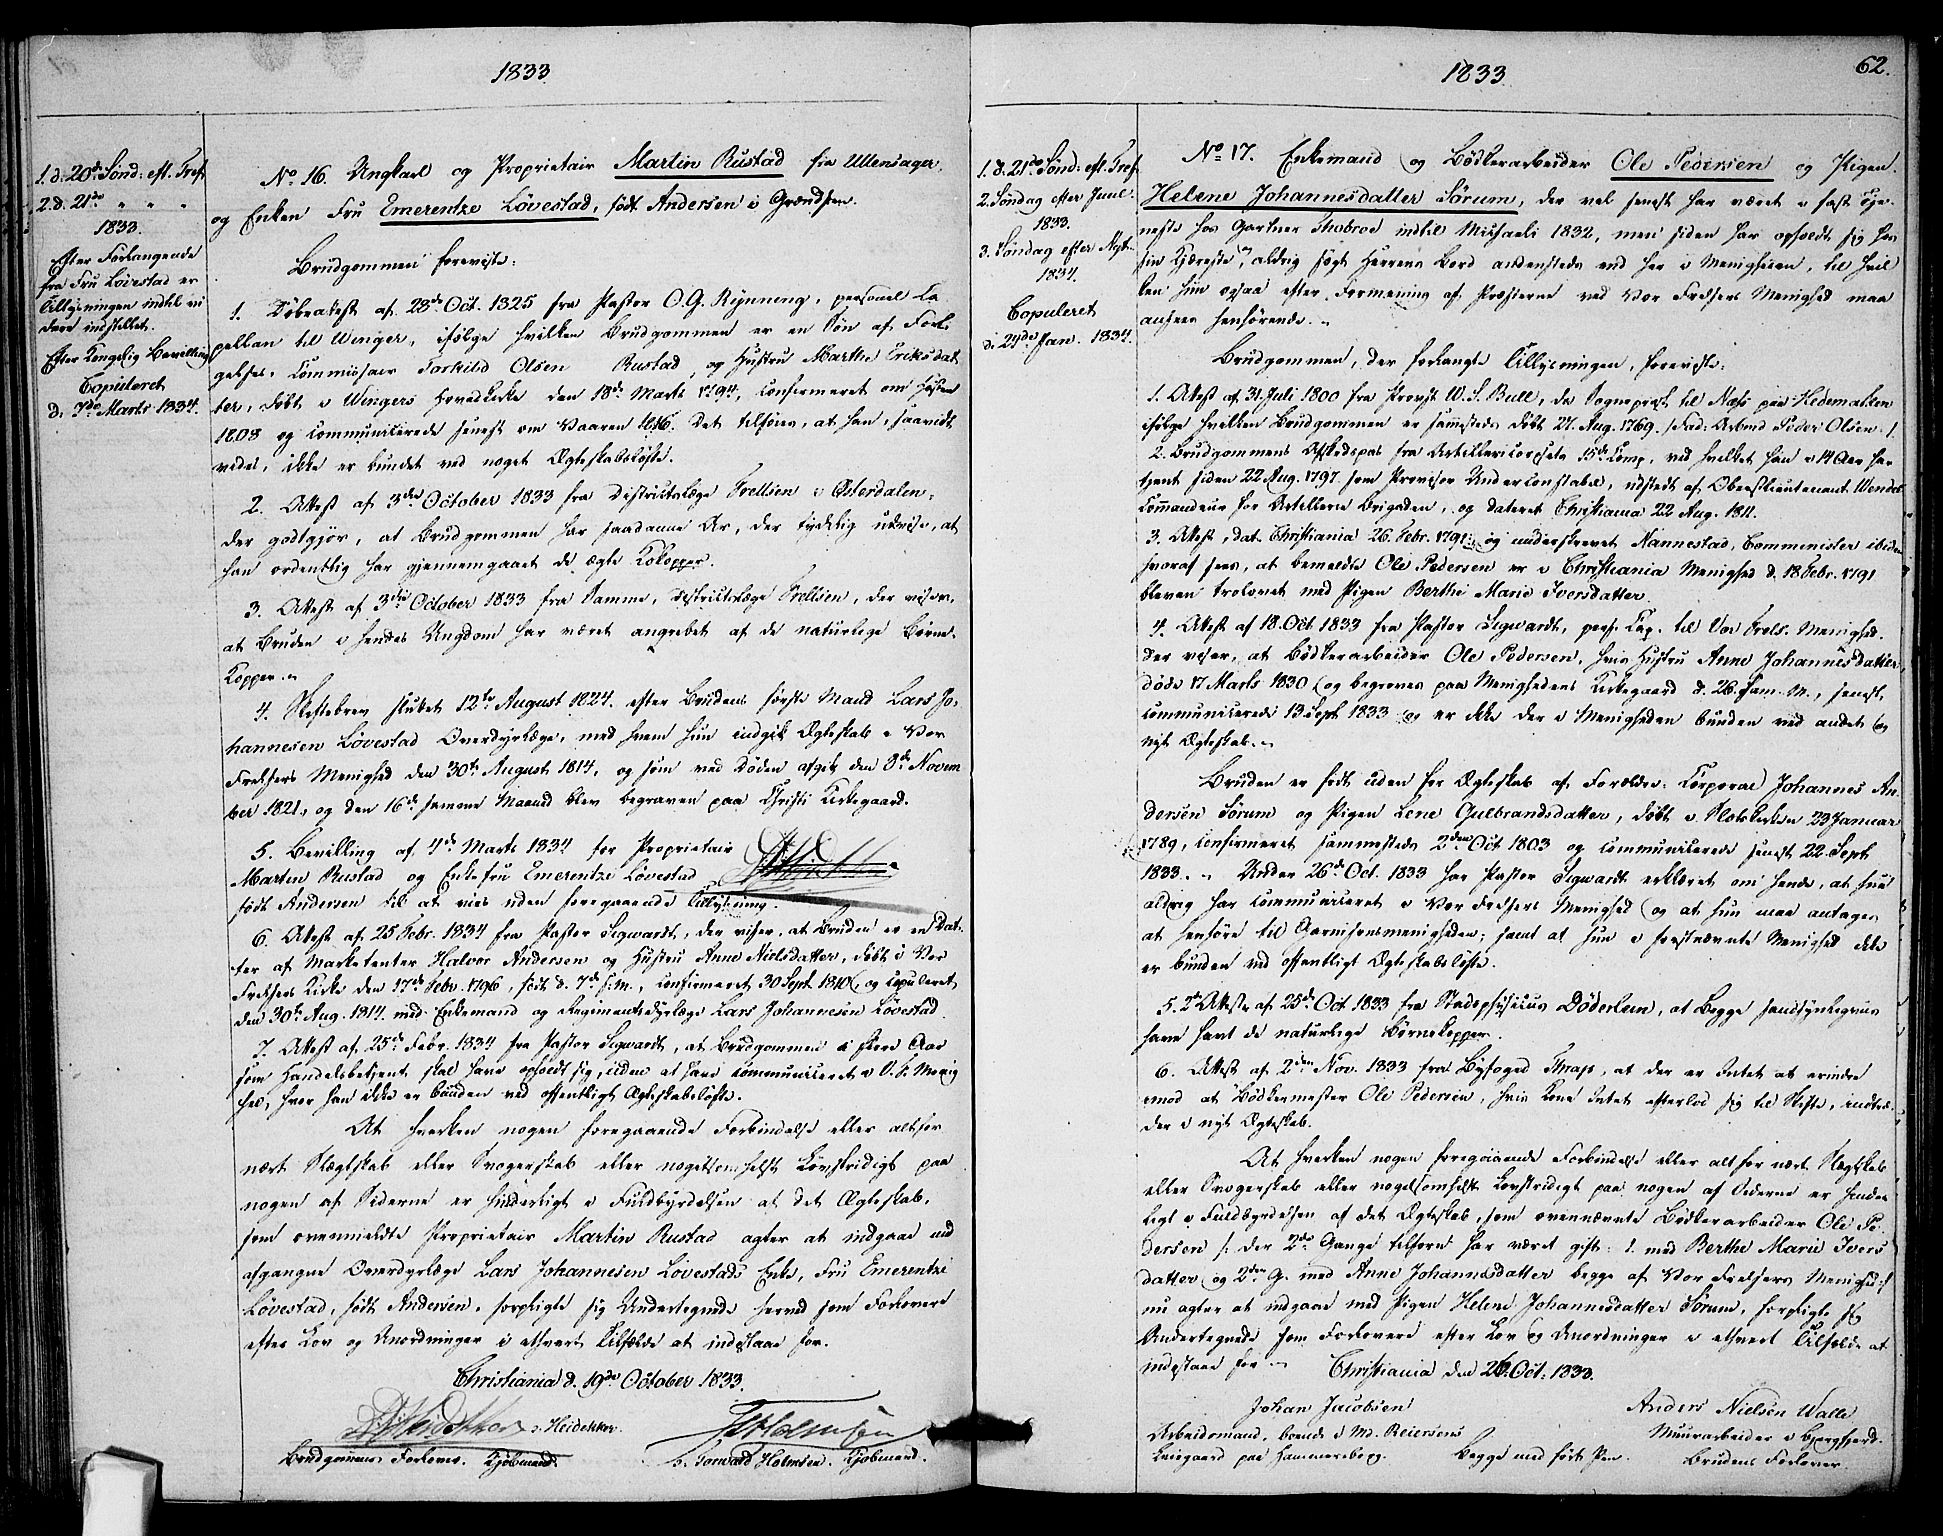 1833
1. d. 20de Sønd: eft. Tref
2. d. 21de " " "
1833.
Efter Forlangende
fra Fru Løvestad er
Tillysningen indtil vi
dere indstillet.
Efter Kongelig Bevilling
Copuleret
d. 7de Marts 1834.
No 16. Ungkarl og Proprietair Martin Rustad fra Ullensager,
og Enken Fru Emerentze Løvestad, født Andersen i Grændsen.
Brudgommen foreviste:
1. Døbeattest af 28de Oct. 1825 fra Pastor O. G. Rynning, personel Ca
pellan til Winger, ifølge hvilken Brudgommen er en Søn af Forli
gelses-Commissair Torkild Olsen Rustad, og Hustru Marthe Eriksdat
ter, døbt i Wingers Hovedkirke den 18de Marts 1794, confirmeret om Høsten
1808 og communicerede senest om Vaaren 1816. Det tilføies, at han, saavidt
vides, ikke er bundet ved noget Ægteskabsløfte.
2. Attest af 3die October 1833 fra Districtslæge Trellsen i Østerdalen,
der godtgjør, at Brudgommen har saadanne Ar, der tydelig udvise, at
han ordentlig har gjennemgaaet de ægte Kokopper.
3. Attest af 3die October 1833 fra Samme, Districtslæge Trellsen, der viser,
at Bruden i hendes Ungdom har været angrebet af de naturlige Børne-
Kopper.
4. Skiftebrev sluttet 12te August 1824 efter Brudens første Mand Lars Jo,
hannesen Løvestad Overdyrlæge, med hvem hun indgik Ægteskab i Vor
Frelsers Menighed den 30te August 1814, og som ved Døden afgik den 8de Novem
ber 1821, og den 16de samme Maaned blev begraven paa Christi Kirkegaard.
5. Bevilling af 4de Marts 1834 for Proprietair
Martin Rustad og Enkefru Emerentze Løvestad
født Andersen til at vies uden foregaaende Tillysning.
6. Attest af 25 Febr. 1834 fra Pastor Sigwardt, der viser, at Bruden er en Dat-
ter af Marketenter Halvor Andersen og Hustru Anne Nielsdatter, døbt i Vor
Frelsers Kirke den 17de Febr. 1796, født d. 7de s. m., confirmeret 30 Sept 1810, og copuleret
den 30te Aug. 1814 med Enkemand og Regimentsdyrlæge Lars Johannesen Løvestad.
7. Attest af 25de Febr. 1834 fra Pastor Sigwardt, at Brudgommen i flere Aar
som Handelsbetjent skal have opholdt sig, uden at have communiceret i V. F. Menig
hed, hvor han ikke er bunden ved offentligt Ægteskabsløfte.
At hverken nogen foregaaende Forbindelse eller altfor
nært Slægtskab eller Svogerskab eller nogetsomhelst Lovstridigt paa
nogen af Siderne er hinderligt i Fuldbyrdelsen at det Ægteskab,
som ovenmeldte Proprietair Martin Rustad agter at indgaae med
afgangne Overdyrlæge Lars Johannesen Løvestads Enke, Fru Emerentze
Løvestad, født Andersen, forpligte sig Undertegnede herved som Forlovere
efter Lov og Anordninger i ethvert Tilfælde at indestaae for.
Christiania d. 19de October 1833.
Heidekker.
Brudgommens Forlover. Kjøbmand.
Torwald Holmsen. Kjøbmand.
1833
62.
1. d. 21de Sønd: eft. Tref
2. Søndag efter Juul.
1833.
3. Søndag efter Nyt-
1834.
Copuleret
d. 24de Jan. 1834.
No 17. Enkemand og Bødkerarbeider Ole Pedersen og Pigen
Helene Johannesdatter Sørum, der vel senest har været i fast Tje-
neste hos Gartner Thobroe indtil Michaeli 1832, men siden har opholdt sig hos
sin Kjæreste, aldrig søgt Herrens Bord andensteds end her i Menigheden, til hvil
ken hun ogsaa efter Formening af Præsterne ved Vor Frelsers Menighed maa
ansees henhørende.
Brudgommen, der forlangte Tillysningen, foreviste:
1. Attest af 31 Juli 1800 fra Provst W. S. Bull, da Sognepræst til Næss paa Hedemarken
ifølge hvilken Brudgommen er sammesteds døbt 27. Aug. 1769. /: Fad: Arbmd Peder Olsen :/
2. Brudgommens Afskedspas fra Artillericorpsets 15de Comp. ved hvilket han i 14 Aar har
tjent siden 22 Aug. 1797 som Provisor Underconstabel, udstedt af Oberstlieutenant Wendel
Commandeur for Artilleri Brigaden, og dateret Christiania 22 Aug. 1811.
3. Attest, dat. Christiania 26. Febr. 1791. og underskrevet Nannestad, Comminister ibidem
hvoraf sees, at bemeldte Ole Pedersen er i Christiania Menighed d. 18. Febr. 1791
bleven trolovet med Pigen Berthe Marie Iversdatter.
4. Attest af 18. Oct 1833 fra Pastor Sigwardt, pers. Cap. til Vor Frels. Menighed
der viser, at Bødkerarbeider Ole Pedersen, hvis Hustru Anne Johannesdatter
døde 17 Marts 1830 og begraves paa Menighedens Kirkegaard d. 26. sam. M., senest
communicerede 13 Sept 1833 og er ikke der i Menigheden bunden ved andet og
nyt Ægteskab.
Bruden er født uden for Ægteskab af Forældre: Corporal Johannes An
dersen Sørum og Pigen Lene Gulbrandsdatter, døbt i Slotskirken 23 Januar
1789, confirmeret sammesteds 2den Oct 1803 og communicerede senest 22 Sept
1833. Under 26de Oct. 1833 har Pastor Sigwardt erklæret om hende, at hun
aldrig har communiceret i Vor Frelsers Menighed og at hun maa antages
at henhøre til Garnisonsmenigheden; samt at hun i førstnævnte Menighed ikke
er bunden ved offentligt Ægteskabsløfte.
5. 2de Atteste af 25de Oct 1833 fra Stadsphysicus Døderlein, at Begge sandsynligviis
have havt de naturlige Børnekopper.
6. Attest af 2den Nov. 1833 fra Byfoged Thrap, at der er Intet at erindre
imod at Bødkermester Ole Pedersen, hvis Kone Intet efterlod sig til Skifte, indtræ-
der i nyt Ægteskab.
At hverken nogen foregaaende Forbindelse eller altfor nært Slægtskab
eller Svogerskab eller nogetsomhelst Lovstridigt paa nogen af Siderne er hinder
ligt i Fuldbyrdelsen af det Ægteskab, som ovennævnte Bødkerarbeider Ole Pe-
dersen /: der 2de Gange tilforn har været gift: 1. med Berthe Marie Ivers
datter og 2den G. med Anne Johannesdatter begge af Vor Frelsers Menighed :/
nu agter at indgaae med Pigen Helene Johannesdatter Sørum, forpligte sig
Undertegnede som Forlovere efter Lov og Anordninger i ethvert Tilfælde at
indestaae for. Christiania den 26. Oct. 1833.
Johan Jacobsen
Arbeidsmand, boende i Md. Reiersens
Leiegaard paa Hammersborg.
Begge med ført Pen.
Anders Nielsen Walle
Muurarbeider i Bjergfjerd.
Brudens Forlover.